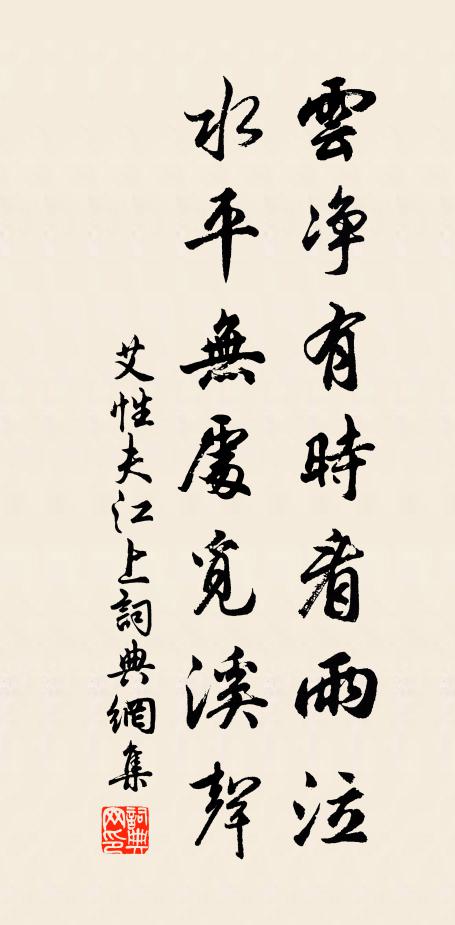 雲净有時看雨泣
水平無處覓溪聲
艾性夫江上詞典網集
詞典
网印